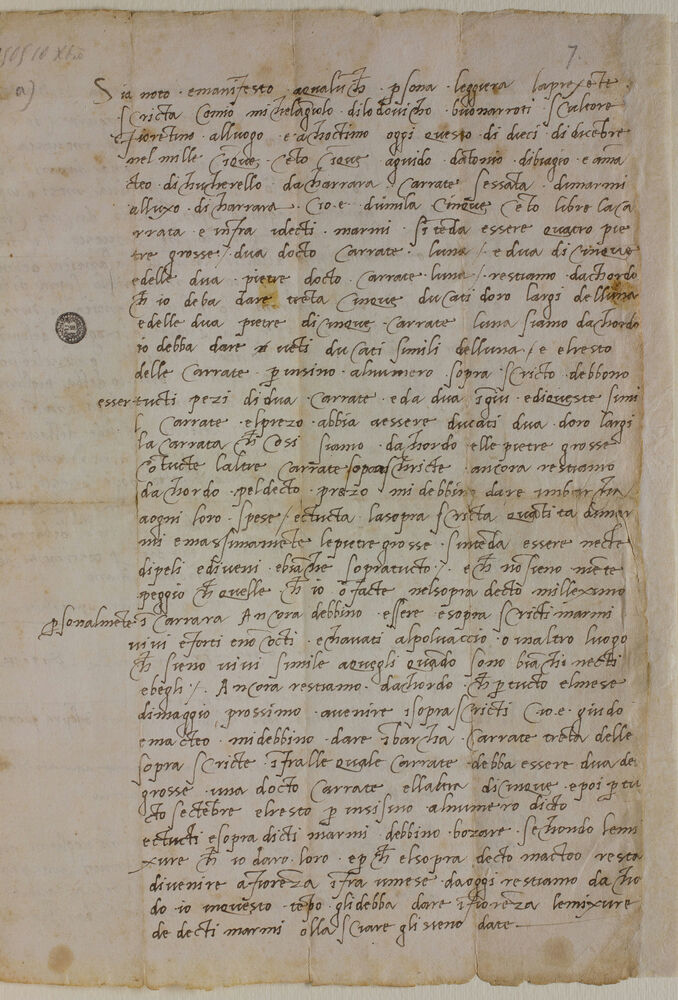 1505 10 Xbre
7.
a)
Sia noto e manifesto a qualu(n)ch(e) p(er)sona leggiera la prexe(n)te
scricta Como michelagniolo di lodovicho buonarroti scultore
fiorentino alluogo e achoctimo oggi questo di dieci di dice(m)bre
nel mille cinque ce(n)to cinque a guido d'antonio di biagio e a ma
cteo di chucherello da charrara Carrate sessa(n)ta di marmi
all uxo di charrara Cio e dumila Cinque Ce(n)to libre la ca
rrata e infra i decti marmi s inte(n)da essere quatro pie
tre grosse / dua d octo Carrate luna / e dua di cinque
e delle dua pietre d octo Carrate luna / restiamo d achordo
ch(e) io deba dare tre(n)ta Cinque ducati d oro largi dell una
e delle dua pietre di cinque Carrate luna siamo d achordo
io debba dare ve(n)ti ducati simili dell una / e el resto
delle Carrate p(er) insino al numero sopra scricto debbono
esser tucti pezi di dua Carrate e da dua i(n) giu e di queste simi
l Carrate el prezo abbia a essere ducati dua d oro largi
la Carrata ch(e) cosi siamo d achordo e lle pietre grosse
co(n) tucte l altre Carrate sopra schricte ancora restiamo
d achordo pel decto prezo mi debbino dare i(n) barcha
a ogni loro spese / e tucta la sopra scricta qua(n)tita di mar
mi e massimame(n)te le pietre grosse s inte(n)da essere necte
di peli e di veni e bia(n)che sopra tucto / e ch(e) no(n) sieno nie(n)te
peggio ch(e) quelle ch(e) io o facte nel sopra decto millexim o
p(er)sonalme(n)te i(n) Carrara Ancora debbino essere e sopra scricti marmi
vivi e forti e no(n) cocti e chavati al polvaccio o in altro luogo
ch(e) sieno vivi simile a quegli qua(n)do sono bia(n)chi necti
e begli / Ancora restiamo d achordo ch(e) p(er) tucto el mese
di maggio prossimo avenire i sopra scricti Cio e guido
e macteo mi debbino dare i(n) barcha Carrate tre(n)ta delle
sopra scricte i(n)fra lle quale Carrate debba essere dua de
grosse una d octo Carrate e ll altra di cinque e poi p(er) tu
cto sectembre el resto p(er) insino al numero dicto
e tucti e sopra dicti marmi debbino bozare sechondo le mi
xure ch(e) io daro loro e p(er)ch(e) el sopra decto macteo resta
di venire a fiore(n)za i(n)fra u(n) mese da oggi restiamo d acho
do io in questo te(m)po gli debba dare i(n) fiore(n)za le mixure
de decti marmi o llasciare gli sieno date